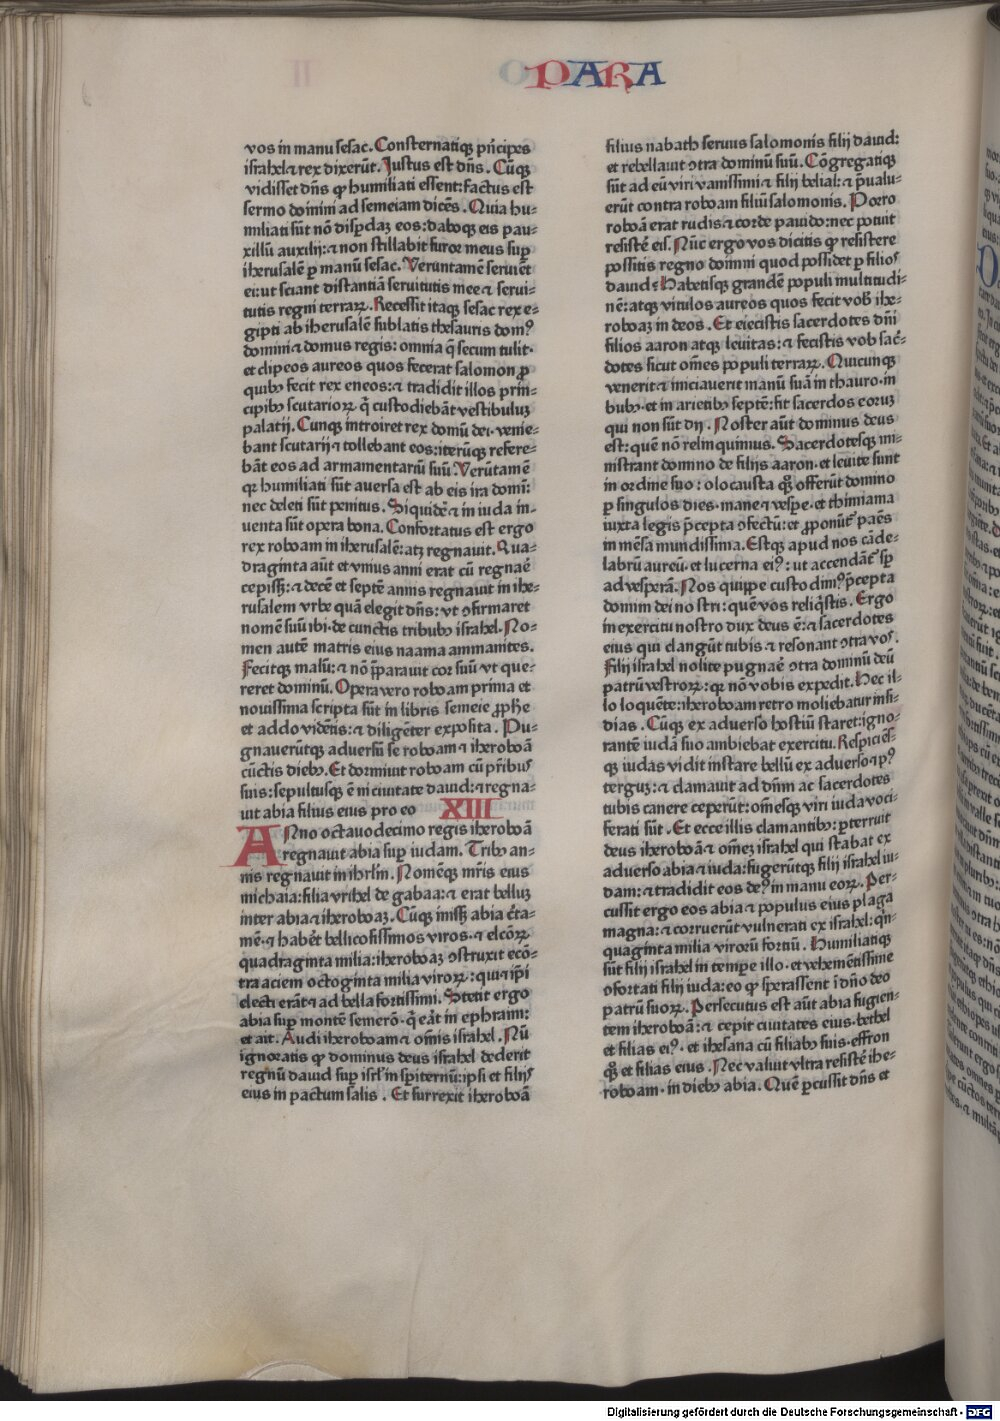 PARA
vos in manu sesac. Consternatiq; prīcipes
israhel ⁊ rex dixerūt. Justus est dn̄s. Cūq;
vidisset dn̄s ꝙ humiliati essent: factus est
sermo domini ad semeiam dicēs. Quia hu-
miliati sūt nō disꝑdaꝫ eos: daboq; eis pau-
xillū auxilij: ⁊ non stillabit furor meus suꝑ
iherusalē ꝑ manū sesac. Veruntamē seruiēt
ei: ut sciant distantiā seruitutis mee ⁊ serui-
tutis regni terraꝝ. Recessit itaq; sesac rex e-
gipti ab iherusalē sublatis thesauris domꝰ
domini ⁊ domus regis: omnia q̄ secum tulit.
et clipeos aureos quos fecerat salomon ꝓ
quibꝰ fecit rex eneos: ⁊ tradidit illos prin-
cipibꝰ scutarioꝝ q̄ custodiebāt vestibuluꝫ
palatij. Cunq; introiret rex domū dei. venie-
bant scutarij ⁊ tollebant eos: iterūq; refere-
bāt eos ad armamentariū suū. Verūtamē
qꝛ humiliati sūt auersa est ab eis ira domī:
nec deleti sūt penitus. Siquidē ⁊ in iuda in-
uenta sūt opera bona. Confortatus est ergo
rex roboam in iherusalē: atꝫ regnauit. Qua-
draginta aūt et vnius anni erat cū regnaē
cepisꝫ: ⁊ decē et septē annis regnauit in ihe-
rusalem vrbe quā elegit dn̄s: vt ɔfirmaret
nomē suū ibi. de cunctis tribubꝰ israhel. No-
men autē matris eius naama ammanites.
Fecitq; malū: ⁊ nō p̄parauit coꝛ suū vt que-
reret dominū. Opera vero roboam prima et
nouissima scripta sūt in libris semeie ꝓphe
et addo vidētis: ⁊ diligēter exposita. Pu-
gnauerūtq; aduersū se roboam ⁊ iheroboā
cūctis diebꝰ. Et dormiuit roboam cū pr̄ibus
suis: sepultusq; ē ni ciuitate dauid: ⁊ regna-
uit abia filius eius pro eo XIII
ANno octauodecimo regis iheroboā
regnauit abia suꝑ iudam. Tribꝰ an-
nis regnauit in ihrlm̄. Nomēq; mr̄is eius
michaia: filia vrihel de gabaa: ⁊ erat belluꝫ
inter abia ⁊ iheroboaꝫ. Cūq; inisꝫ abia c̄ta-
mē. ⁊ habēt bellicosissimos viros. ⁊ elcōꝝ
quadraginta milia: iheroboaꝫ ɔstruxit ecō-
tra aciem octoginta milia viroꝝ: qui ⁊ ip̄i
electi erāt ⁊ ad bella fortissimi. Stetit ergo
abia suꝑ montē semerō. q̄ eāt in ephraim:
et ait. Audi iheroboam ⁊ om̄is israhel. Nū
ignoratis ꝙ dominus deus israhel dederit
regnū dauid suꝑ isrl̄ in sꝑiternū: ipsi et filijs
eius in pactum salis. Et surrexit iheroboā
filius nabath seruus salomonis filij dauid:
et rebellauit ɔtra dominū suū. Cōgregatiq;
sūt ad eū viri vanissimi ⁊ filij belial: ⁊ p̄ualu-
erūt contra roboam filiū salomonis. Porro
roboā erat rudis ⁊ corde pauido: nec potuit
resistē eis. Nūc ergo vos dicitis ꝙ resistere
possitis regno domini quod possidet ꝑ filios
dauid: Habetisq; grandē populi multitudi-
nē: atq; vitulos aureos quos fecit vob̄ ihe-
roboaꝫ in deos. Et eiecistis sacerdotes dn̄i
filios aaron atq; leuitas: ⁊ fecistis vob̄ sac̄-
dotes sicut om̄es populi terraꝝ. Quicunq;
venerit ⁊ iniciauerit manū suā in thauro. in
bubꝰ. et in arietibꝰ septē: fit sacerdos eoruꝫ
qui non sūt dij. Noster aūt dominus deus
est: quē nō relinquimus. Sacerdotesq; mi-
nistrant domino de filijs aaron. et leuite sunt
in ordine suo: olocausta q̄ꝫ offerūt domino
ꝑ singulos dies. mane ⁊ vesꝑe. et thimiama
iuxta legis p̄cepta ɔfectū: et ꝓponūt̄ panēs
in mēsa mundissima. Estq; apud nos cāde-
labrū aureū. et lucerna eiꝰ: ut accendāt̄ sꝑ
ad vesꝑā. Nos quippe custodimꝰ p̄cepta
domini dei nostri: quē vos reliq̄stis. Ergo
in exercitu nostro dux deus ē: ⁊ sacerdotes
eius qui clangūt tubis ⁊ resonant ɔtra vos.
Filij israhel nolite pugnaē ɔtra dominū deū
patrū vestroꝝ: qꝛ nō vobis expedit. Hec il-
lo loquēte: iheroboam retro moliebatur insi-
dias. Cūq; ex aduerso hostiū staret: igno-
rantē iudā suo ambiebat exercitu. Respiciēs-
q; iudas vidit instare bellū ex aduerso ⁊ pꝰ
terguꝫ: ⁊ clamauit ad dn̄m ac sacerdotes
tubis canere ceperūt: om̄esq; viri iuda voci-
ferati sūt. Et ecce illis clamantibꝰ: ꝑterruit
deus iheroboā ⁊ om̄eꝫ israhel qui stabat ex
aduerso abia ⁊ iuda: fugerūtq; filij israhel iu-
dam: ⁊ tradidit eos deꝰ in manu eoꝝ. Per-
cussit ergo eos abia ⁊ populus eius plaga
magna: ⁊ corruerūt vulnerati ex israhel: qn̄-
quaginta milia viroꝝū fortiū. Humiliatiq;
sūt filij israhel in tempe illo. et vehemētissime
ɔfortati filij iuda: eo ꝙ sperassent ī dn̄o deo
patrū suoꝝ. Persecutus est aūt abia fugien-
tem iheroboā: ⁊ cepit ciuitates eius. bethel
et filias eiꝰ. et ihesana cū filiabꝰ suis. effron
q̄ꝫ et filias eius. Nec valuit vltra resistē ihe-
roboam. in diebꝰ abia. Quē ꝑcussit dn̄s et
Digitalisierung gefördert durch die Deutsche Forschungsgemeinschaft - DFG